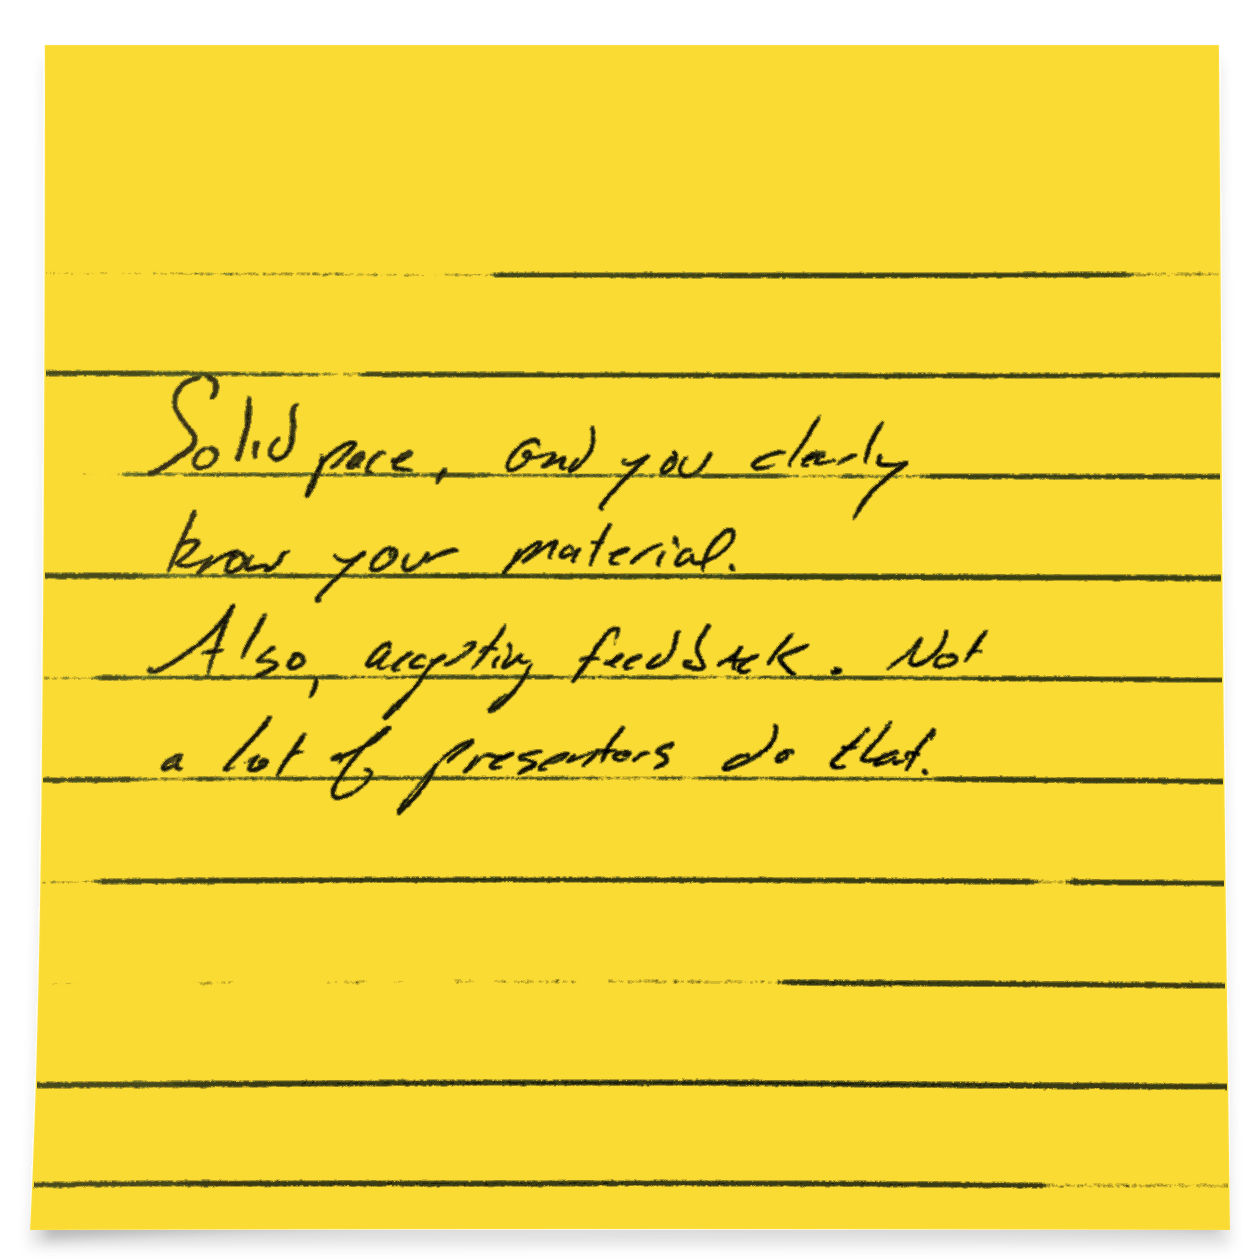 Solid pace, and you clearly
know your material.
Also, accepting feedback. Not
a lot of presentors do that.